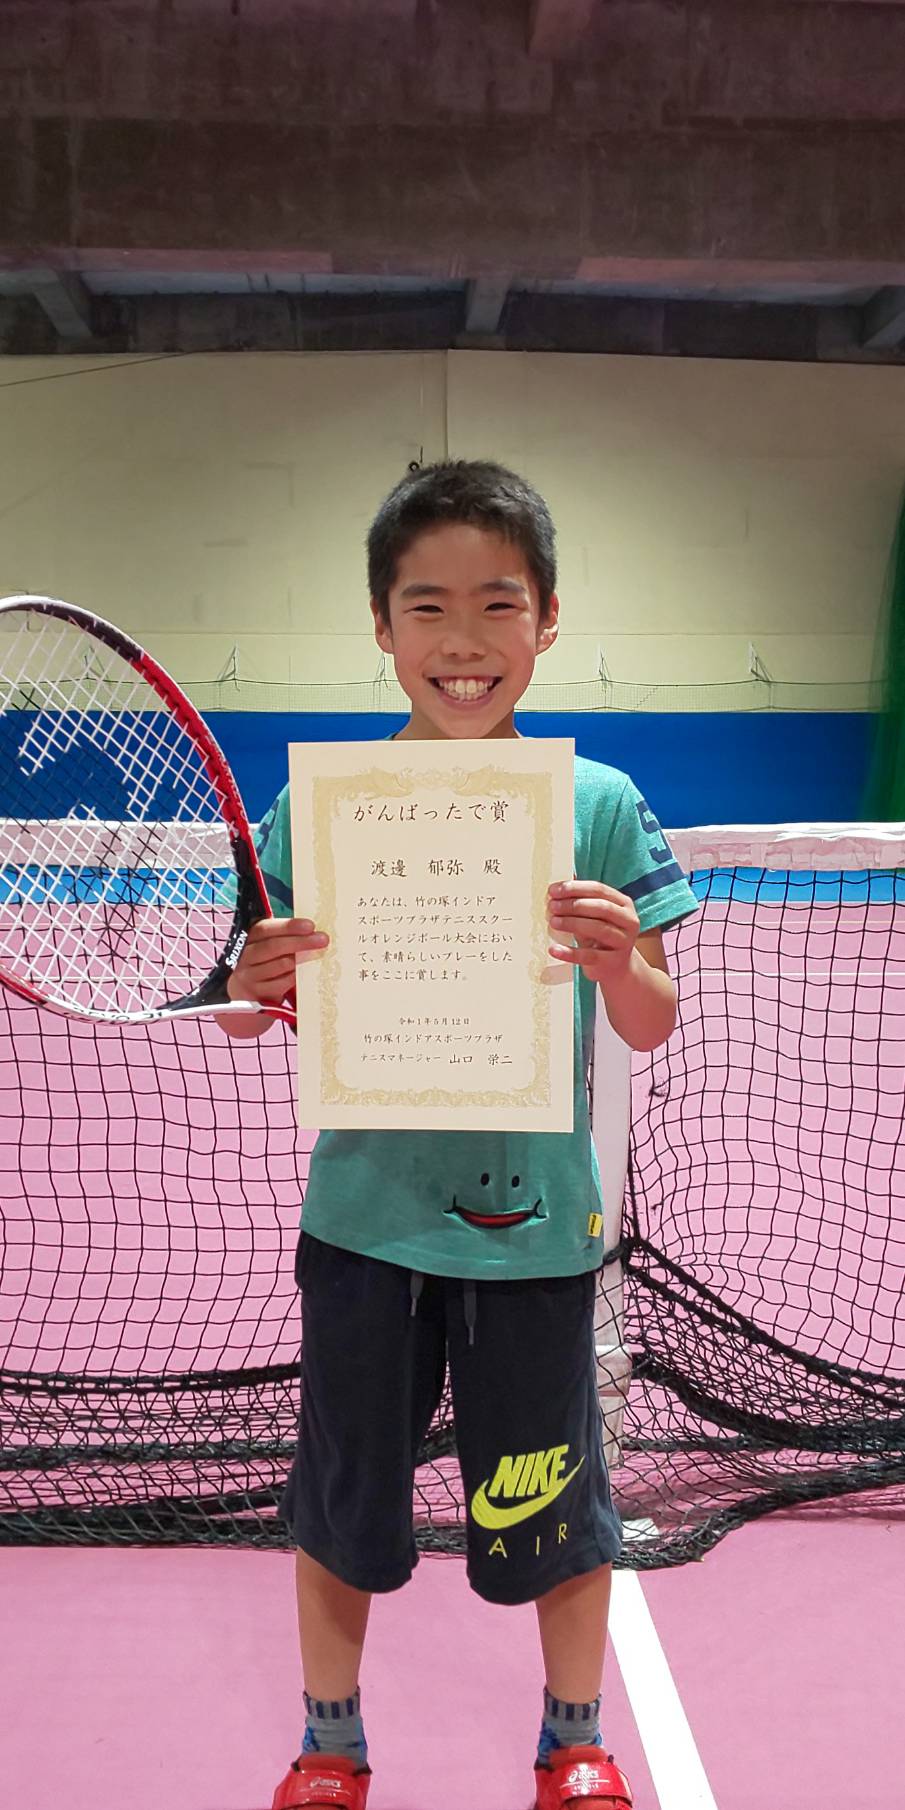 がんばったで賞
渡邊 郁弥 殿
あなたは、竹の塚インドア
スポーツプラザテニススクー
ルオレンジボール大会におい
て、素晴らしいプレーをした
事をここに賞します。
令和1年5月12日
竹の塚インドアスポーツプラザ
テニスマネージャー 山口 栄二
SRIXON
NIKE
AIR
asics
asics